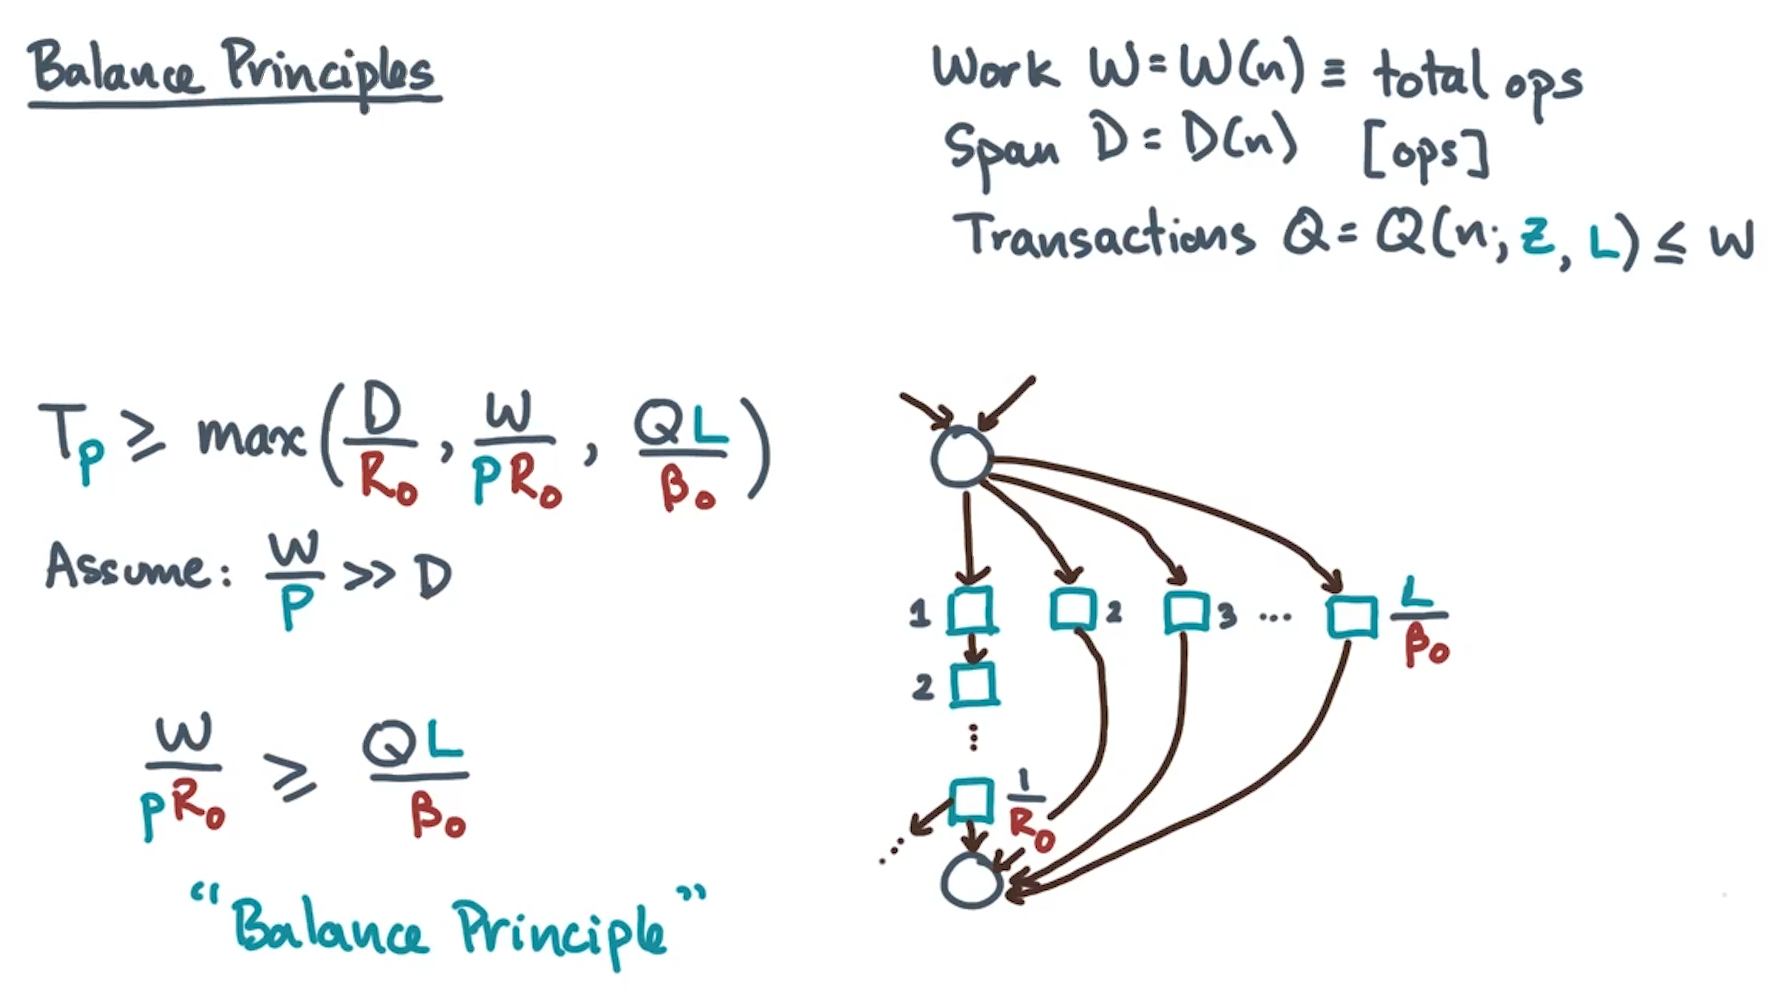 Balance Principles
Work W = W(n) ≡ total ops
Span D = D(n) [ops]
Transactions Q = Q(n; Z, L) ≤ W
T_p ≥ max(D/R₀, W/(pR₀), QL/β₀)
Assume: W/P >> D
W/(pR₀) ≥ QL/β₀
"Balance Principle"
1 2 3 ... L/β₀
2
⋮
1/R₀
...